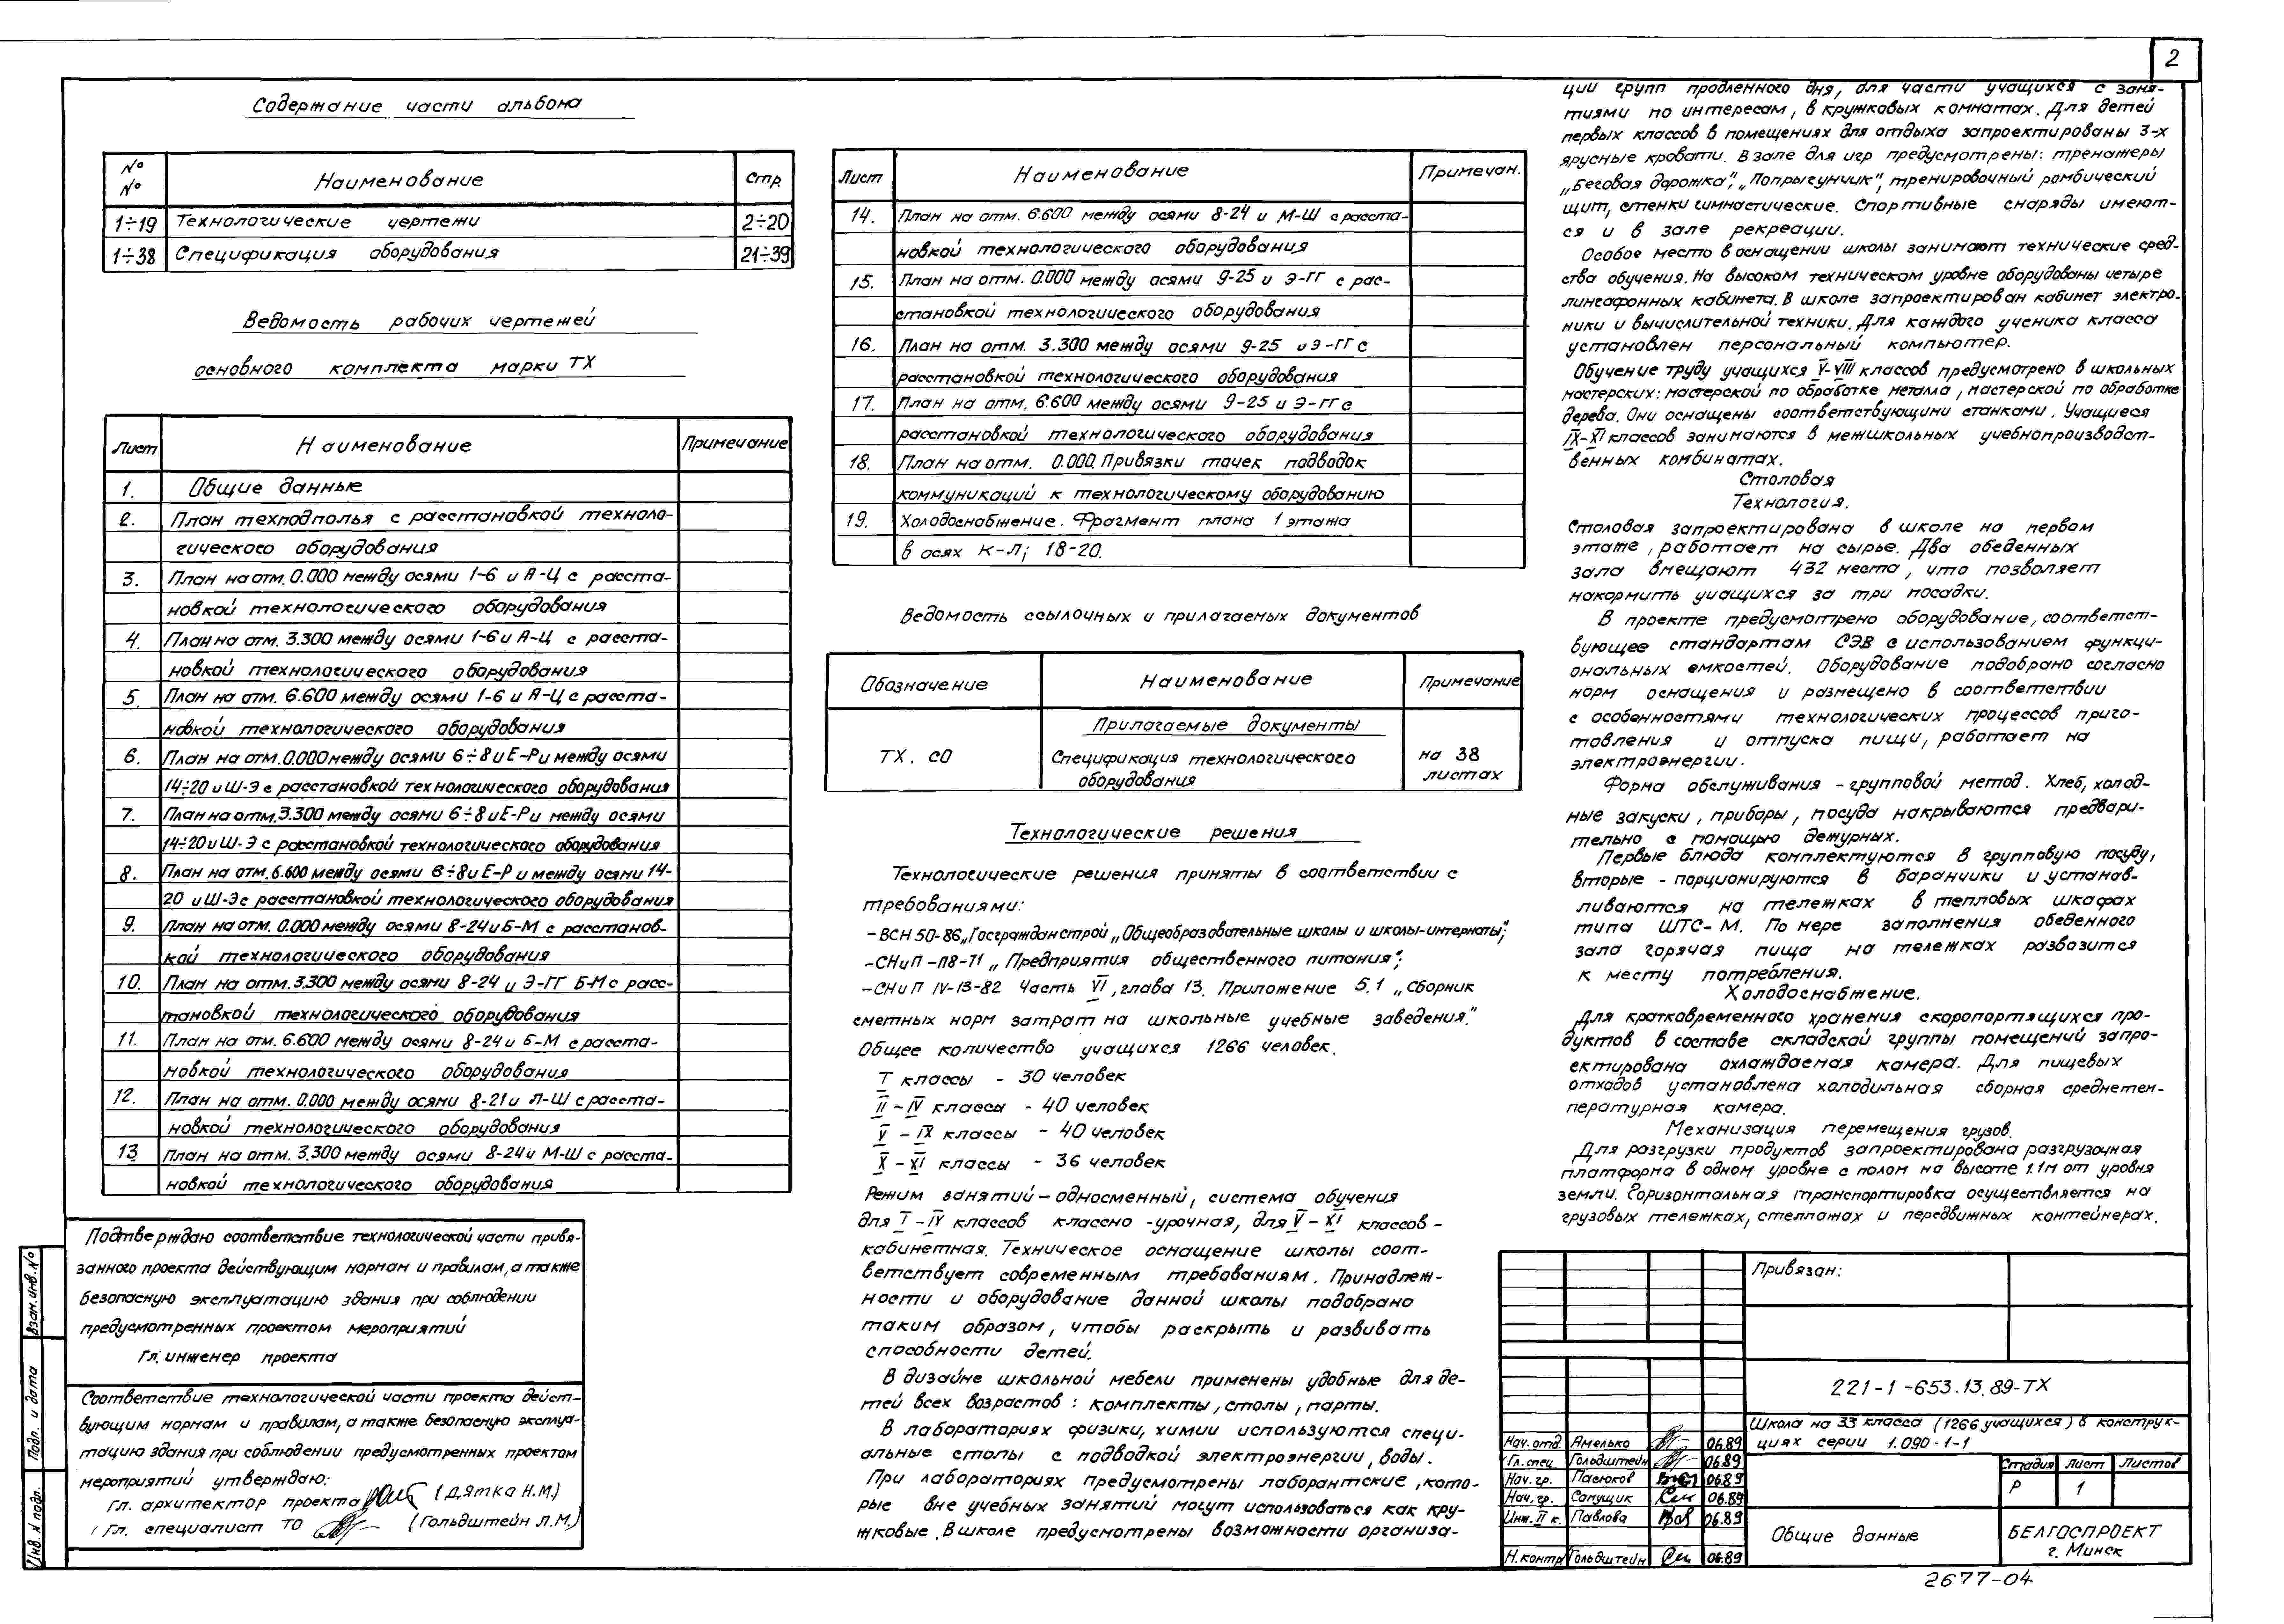 2
Содержание части альбома
№ № Наименование Стр.
1÷19 Технологические чертежи 2÷20
1÷38 Спецификация оборудования 21÷39
Ведомость рабочих чертежей
основного комплекта марки ТХ
Лист Наименование Примечание
1. Общие данные
2. План техподполья с расстановкой техноло-
гического оборудования
3. План на отм. 0.000 между осями 1-6 и А-Ц с расста-
новкой технологического оборудования
4. План на отм. 3.300 между осями 1-6 и А-Ц с расста-
новкой технологического оборудования
5. План на отм. 6.600 между осями 1-6 и А-Ц с расста-
новкой технологического оборудования
6. План на отм. 0.000 между осями 6÷8 и Е-Р и между осями
14÷20 и Ш-Э с расстановкой технологического оборудования
7. План на отм. 3.300 между осями 6÷8 и Е-Р и между осями
14÷20 и Ш-Э с расстановкой технологического оборудования
8. План на отм. 6.600 между осями 6÷8 и Е-Р и между осями 14-
20 и Ш-Э с расстановкой технологического оборудования
9. План на отм. 0.000 между осями 8-24 и Б-М с расстанов-
кой технологического оборудования
10. План на отм. 3.300 между осями 8-24 и Э-ГГ Б-М с расс-
тановкой технологического оборудования
11. План на отм. 6.600 между осями 8-24 и Б-М с расста-
новкой технологического оборудования
12. План на отм. 0.000 между осями 8-21 и Л-Ш с расста-
новкой технологического оборудования
13 План на отм. 3.300 между осями 8-24 и М-Ш с расста-
новкой технологического оборудования
Подтверждаю соответствие технологической части привя-
занного проекта действующим нормам и правилам, а также
безопасную эксплуатацию здания при соблюдении
предусмотренных проектом мероприятий
Гл. инженер проекта
Соответствие технологической части проекта дейст-
вующим нормам и правилам, а также безопасную эксплуа-
тацию здания при соблюдении предусмотренных проектом
мероприятий утверждаю:
Гл. архитектор проекта (Дятка Н.М.)
Гл. специалист ТО (Гольдштейн Л.М.)
Взам. инв. №
Подп. и дата
Инв. N подл.
Лист Наименование Примечан.
14. План на отм. 6.600 между осями 8-24 и М-Ш с расста-
новкой технологического оборудования
15. План на отм. 0.000 между осями 9-25 и Э-ГГ с рас-
становкой технологического оборудования
16. План на отм. 3.300 между осями 9-25 и Э-ГГ с
расстановкой технологического оборудования
17. План на отм. 6.600 между осями 9-25 и Э-ГГ с
расстановкой технологического оборудования
18. План на отм. 0.000. Привязки точек подводок
коммуникаций к технологическому оборудованию
19. Холодоснабжение. Фрагмент плана 1 этажа
в осях К-Л; 18-20.
Ведомость ссылочных и прилагаемых документов
Обозначение Наименование Примечание
Прилагаемые документы
ТХ. СО Спецификация технологического на 38
оборудования листах
Технологические решения
Технологические решения приняты в соответствии с
требованиями:
-ВСН 50-86 „Госгражданстрой „Общеобразовательные школы и школы-интернаты";
-СНиП -П8-71 „Предприятия общественного питания";
-СНиП IV-13-82 Часть VI, глава 13. Приложение 5.1 „Сборник
сметных норм затрат на школьные учебные заведения."
Общее количество учащихся 1266 человек.
I классы - 30 человек
II - IV классы - 40 человек
V - IX классы - 40 человек
X - XI классы - 36 человек
Режим занятий - односменный, система обучения
для I - IV классов классно-урочная, для V - XI классов -
кабинетная. Техническое оснащение школы соот-
ветствует современным требованиям. Принадлеж-
ности и оборудование данной школы подобрано
таким образом, чтобы раскрыть и развивать
способности детей.
В дизайне школьной мебели применены удобные для де-
тей всех возрастов: комплекты, столы, парты.
В лабораториях физики, химии используются специ-
альные столы с подводкой электроэнергии, воды.
При лабораториях предусмотрены лаборантские, кото-
рые вне учебных занятий могут использоваться как кру-
жковые. В школе предусмотрены возможности организа-
ции групп продленного дня, для части учащихся с заня-
тиями по интересам, в кружковых комнатах. Для детей
первых классов в помещениях для отдыха запроектированы 3-х
ярусные кровати. В зале для игр предусмотрены: тренажеры
„Беговая дорожка", „Попрыгунчик", тренировочный ромбический
щит, стенки гимнастические. Спортивные снаряды имеют-
ся и в зале рекреации.
Особое место в оснащении школы занимают технические сред-
ства обучения. На высоком техническом уровне оборудованы четыре
лингафонных кабинета. В школе запроектирован кабинет электро-
ники и вычислительной техники. Для каждого ученика класса
установлен персональный компьютер.
Обучение труду учащихся V-VIII классов предусмотрено в школьных
мастерских: мастерской по обработке металла, мастерской по обработке
дерева. Они оснащены соответствующими станками. Учащиеся
IX-XI классов занимаются в межшкольных учебнопроизводст-
венных комбинатах.
Столовая
Технология.
Столовая запроектирована в школе на первом
этаже, работает на сырье. Два обеденных
зала вмещают 432 места, что позволяет
накормить учащихся за три посадки.
В проекте предусмотрено оборудование, соответст-
вующее стандартам СЭВ с использованием функци-
ональных емкостей. Оборудование подобрано согласно
норм оснащения и размещено в соответствии
с особенностями технологических процессов приго-
товления и отпуска пищи, работает на
электроэнергии.
Форма обслуживания - групповой метод. Хлеб, холод-
ные закуски, приборы, посуда накрываются предвари-
тельно с помощью дежурных.
Первые блюда комплектуются в групповую посуду,
вторые - порционируются в баранчики и устанав-
ливаются на тележках в тепловых шкафах
типа ШТС-М. По мере заполнения обеденного
зала горячая пища на тележках развозится
к месту потребления.
Холодоснабжение.
Для кратковременного хранения скоропортящихся про-
дуктов в составе складской группы помещений запро-
ектирована охлаждаемая камера. Для пищевых
отходов установлена холодильная сборная среднетем-
пературная камера.
Механизация перемещения грузов.
Для разгрузки продуктов запроектирована разгрузочная
платформа в одном уровне с полом на высоте 1.1м от уровня
земли. Горизонтальная транспортировка осуществляется на
грузовых тележках, стеллажах и передвижных контейнерах.
Привязан:
221-1-653.13.89-ТХ
Школа на 33 класса (1266 учащихся) в конструк-
циях серии 1.090-1-1
Нач. отд. Амелько 06.89
Гл. спец. Гольдштейн 06.89
Нач. гр. Пасюков 06.89
Нач. гр. Самущик 06.89
Инж. II к. Павлова 06.89
Н. контр Гольдштейн 06.89
Стадия Лист Листов
Р 1
Общие данные
БЕЛГОСПРОЕКТ
г. Минск
2677-04